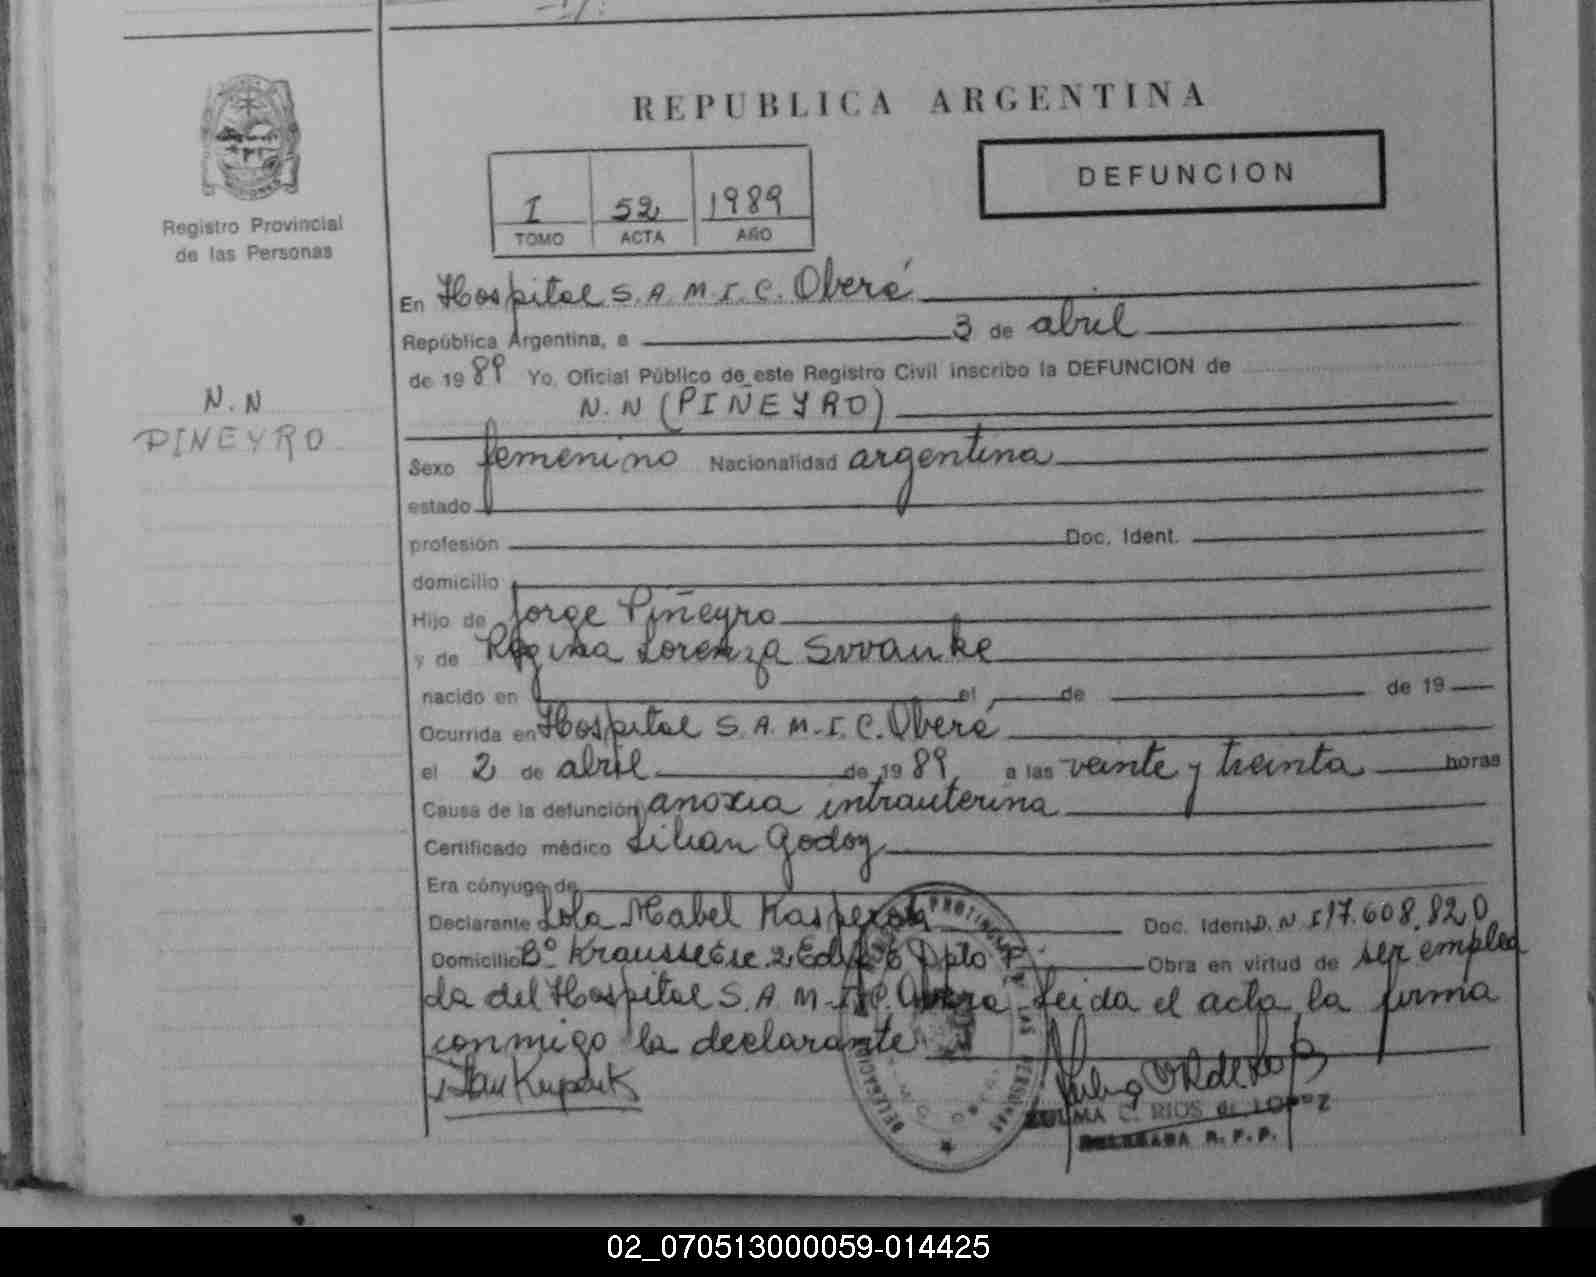 REPUBLICA ARGENTINA
DEFUNCION
I 52 1989
TOMO ACTA AÑO
Registro Provincial
de las Personas
N.N
PINEYRO
En Hospital S.A.M.I.C. Oberá
República Argentina, a 3 de abril
de 1989 Yo, Oficial Público de este Registro Civil inscribo la DEFUNCION de
N.N (PIÑEYRO)
Sexo femenino Nacionalidad argentina
estado
profesión Doc. Ident.
domicilio
Hijo de Jorge Piñeyro
y de Regina Lorenza
nacido en el de de 19
Ocurrida en Hospital S.A.M.I.C. Oberá
el 2 de abril de 1989 a las veinte y treinta horas
Causa de la defunción anoxia intrauterina
Certificado médico Lilian Godoy
Era cónyuge de
Declarante Lola Mabel Doc. Ident D.N.I 17.608.820
Domicilio Bº Dpto Obra en virtud de ser emplea
da del Hospital S.A.M.I.C. Obera Leida el acta la firma
conmigo la declarante
ZULMA C. RIOS de LOPEZ
DELEGADA R.P.P.
02_070513000059-014425